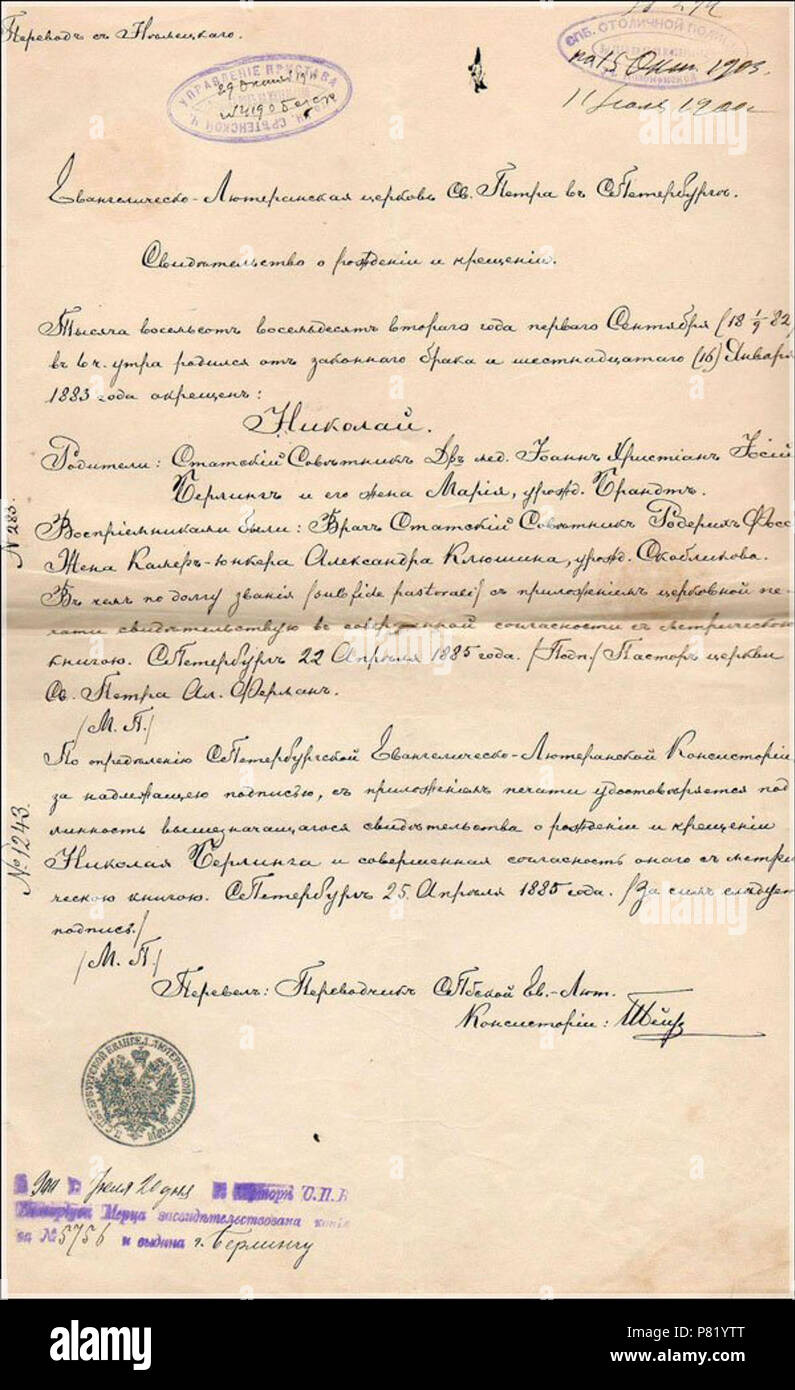 Переводъ съ Нѣмецкаго.
УПРАВЛЕНІЕ ПРИСТАВА
СРѢТЕНСКОЙ Ч.
29 Октяб 19
№ 4190
СПБ. СТОЛИЧНОЙ ПОЛИЦ
на 15 Окт. 1903.
11 Іюля 1900
Евангелическо-Лютеранская церковь Св. Петра въ СПетербургѣ.
Свидѣтельство о рожденіи и крещеніи.
Тысяча восемьсотъ восемьдесятъ втораго года перваго Сентября (18 1/9 82)
въ 6 ч. утра родился отъ законнаго брака а шестнадцатаго (16) Января
1883 года окрещенъ:
Николай.
Родители: Статскій Совѣтникъ Дръ мед. Іоаннъ Христіанъ Іосій
Берлингъ и его жена Марія, урожд. Брандтъ.
№ 283.
Воспріемниками были: Врачъ Статскій Совѣтникъ Родерихъ Фосс
Жена Камеръ-юнкера Александра Клюшина, урожд. Скобликова.
Въ чемъ по долгу званія /sub fide pastorali/ съ приложеніемъ церковной пе-
чати свидѣтельствую въ совершенной согласности съ метрическою
книгою. СПетербургъ 22 Апрѣля 1885 года. /Подп./ Пасторъ церкви
Св. Петра Ал. Ферманъ.
/М. П./
По опредѣленію СПетербургской Евангелическо-Лютеранской Консисторіи,
за надлежащею подписью, съ приложеніемъ печати удостовѣряется под
линность вышезначащагося свидѣтельства о рожденіи и крещеніи
№ 1243.
Николая Берлинга и совершенная согласность онаго съ метри
ческою книгою. СПетербургъ 25 Апрѣля 1885 года. /За симъ слѣдуетъ
подпись./
/М. П./
Перевелъ: Переводчикъ СПБской Ев.-Лют.
Консисторіи:
С. ПЕТЕРБУРГСКОЙ ЕВАНГЕЛ. ЛЮТЕРАНСКОЙ КОНСИСТОРІИ
900 г. Іюля 20 дня въ Конторѣ С.П.Б
Нотаріуса Мерца засвидѣтельствована копія
за № 5756 и выдана г. Берлингу
alamy
Image ID: P81YTT
www.alamy.com